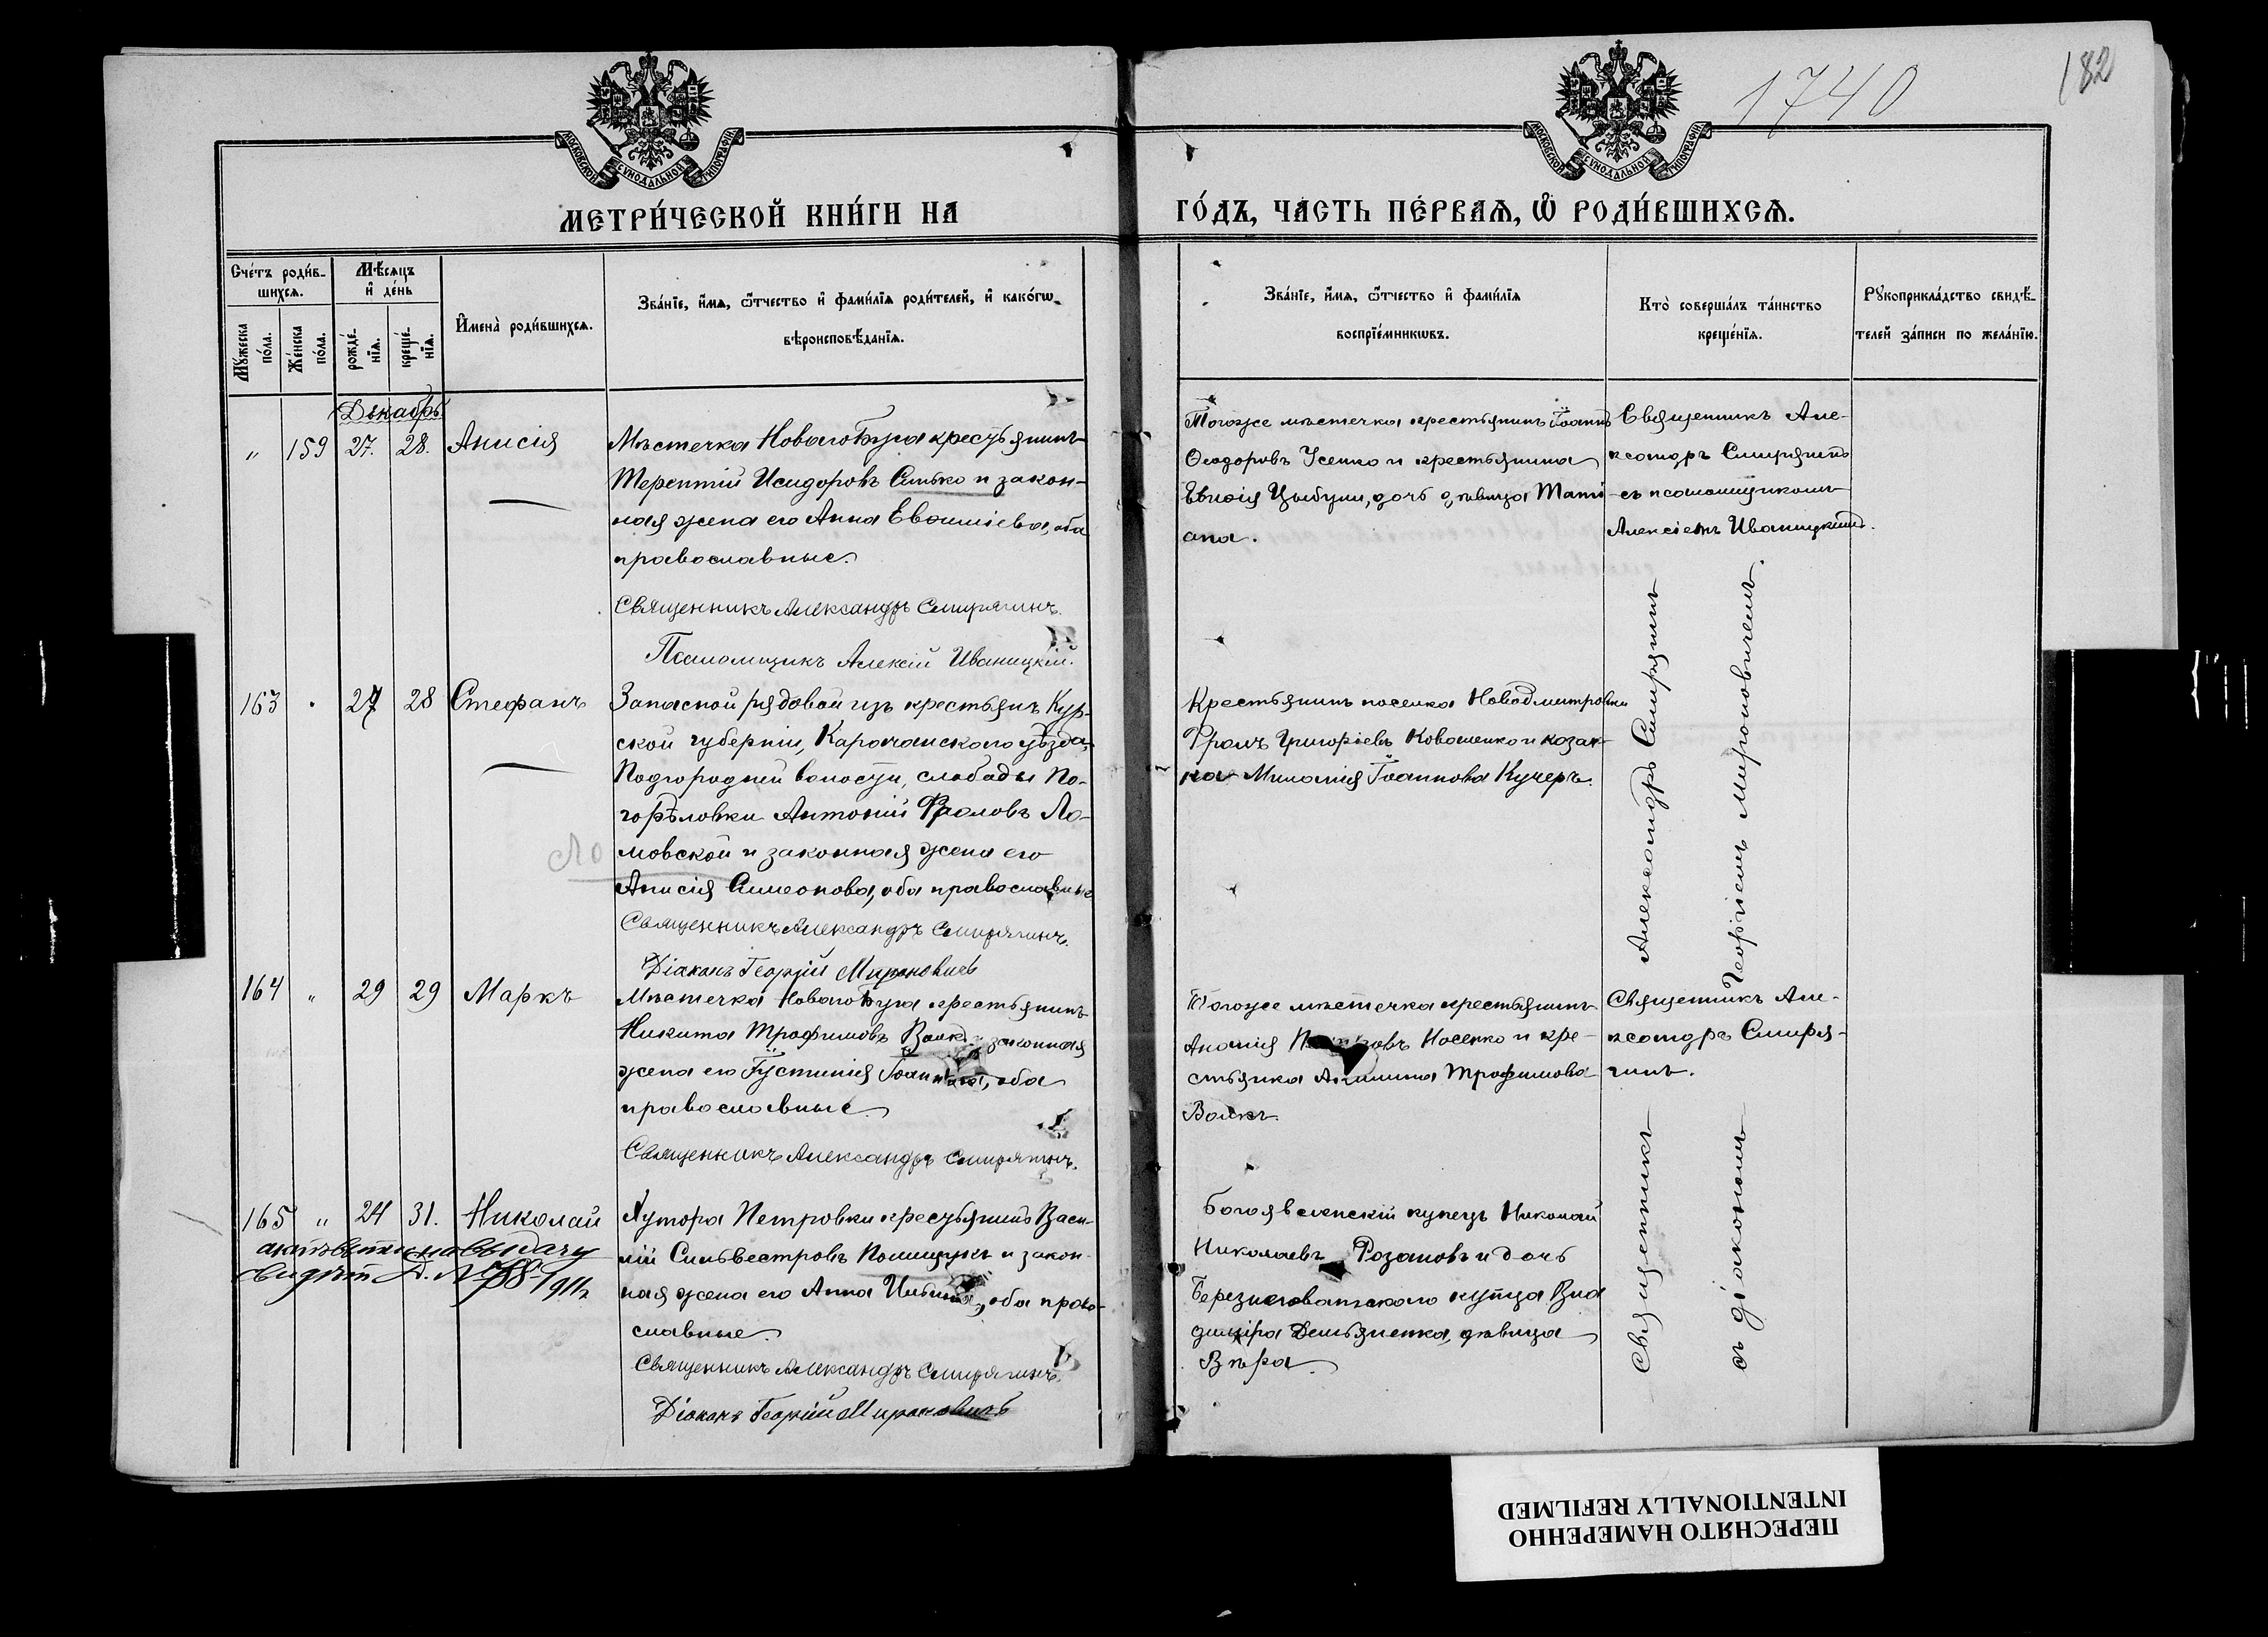 1740
182
МОСКОВСКОЙ СѴНОДАЛЬНОЙ ТИПОГРАФІИ
МОСКОВСКОЙ СѴНОДАЛЬНОЙ ТИПОГРАФІИ
МЕТРИ́ЧЕСКОЙ КНИ́ГИ НА
ГО́ДЪ, ЧАСТЬ ПЕ́РВАѦ, Ѽ РОДИ́ВШИХСѦ.
Сче́тъ роди́в-
шихсѧ.
Мꙋжеска
по́ла.
Же́нска
по́ла.
Мѣ́сѧцъ
и҆ де́нь
рожде́-
нїѧ.
креще́-
нїѧ.
И҆мена̀ роди́вшихсѧ.
Зва́нїе, и҆́мѧ, ѻ҆́тчество и҆ фами́лїѧ роди́телей, и҆ како́гѡ
вѣроисповѣ́данїѧ.
Зва́нїе, и҆́мѧ, ѻ҆́тчество и҆ фами́лїѧ
воспрїе́мникѡвъ.
Кто̀ соверша́лъ та́инство
креще́нїѧ.
Рꙋкоприкла́дство свидѣ́-
телей за́писи по жела́нїю.
Декабрь
" 159 27. 28. Анисія
Мѣстечка Новаго Буга крестьянинъ
Терентій Исидоровъ Синько и закон-
ная жена его Анна Евѳиміева, оба
православные.
Священникъ Александръ Смирягинъ.
Псаломщикъ Алексій Иваницкій.
Тогоже мѣстечка крестьянинъ Іоаннъ
Ѳеодоровъ Усенко и крестьянина
Евѳимія Цыбули, дочь дѣвица Тати-
ана.
Священникъ Але-
ксандръ Смирягинъ
съ псаломщикомъ
Алексіемъ Иваницкимъ.
163 " 27 28 Стефанъ
Запасной рядовой изъ крестьянъ Кур-
ской губерніи, Корочанскаго уѣзда,
Подгородней волости, слободы По-
горѣловки Антоній Фроловъ Ло-
мовской и законная жена его
Анисія Симеонова, оба православные
Священникъ Александръ Смирягинъ.
Діаконъ Георгій Мироновичъ
Ло
Крестьянинъ поселка Новодмитровки
Фролъ Григоріевъ Коваленко и козач-
ка Миланія Іоаннова Кучеръ.
Священникъ Александръ Смирягинъ
съ діакономъ Георгіемъ Мироновичемъ.
164 " 29 29 Маркъ
Мѣстечка Новаго Буга крестьянинъ
Никита Трофимовъ Волкъ и законная
жена его Іустинія Іоаннова, оба
православные.
Священникъ Александръ Смирягинъ.
Тогоже мѣстечка крестьянинъ
Ананія Носенко и кре-
стьянка Акилина Трофимова
Волкъ.
Священникъ Але-
ксандръ Смиря-
гинъ.
165 " 24 31. Николай
Хутора Петровки крестьянинъ Васи-
лій Сильвестровъ Полищукъ и закон-
ная жена его Анна оба право-
славные.
Священникъ Александръ Смирягинъ.
Діаконъ Георгій Мироновичъ
на выдачу
свидѣт. № 788 1911
Богоявленскій купецъ Николай
Николаевъ Розановъ и дочь
Березнеговатскаго купца Вла
диміра дѣвица
Вѣра.
ПЕРЕСНЯТО НАМЕРЕННО
INTENTIONALLY REFILMED